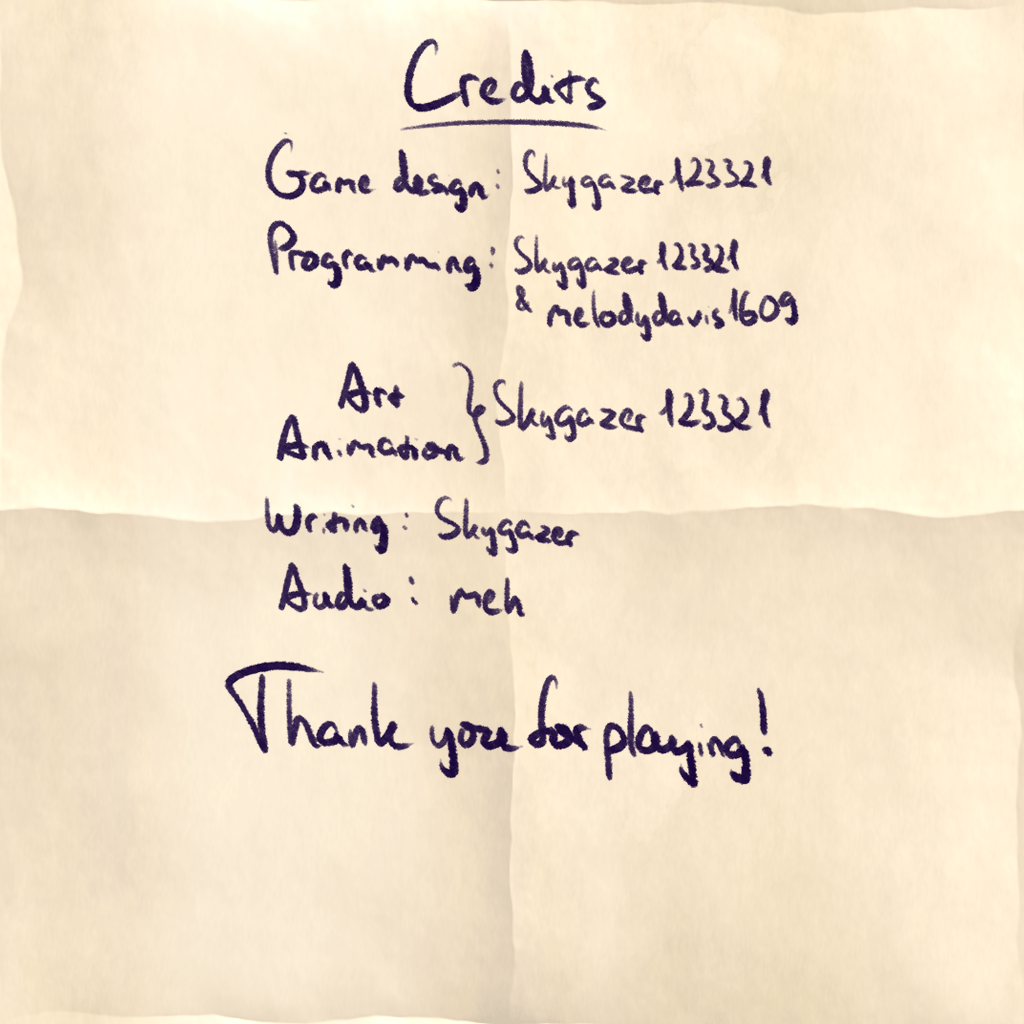 Credits
Game design: Skygazer123321
Programming: Skygazer123321
& melodydavis1609
Art
Animation } Skygazer 123321
Writing: Skygazer
Audio: meh
Thank you for playing!